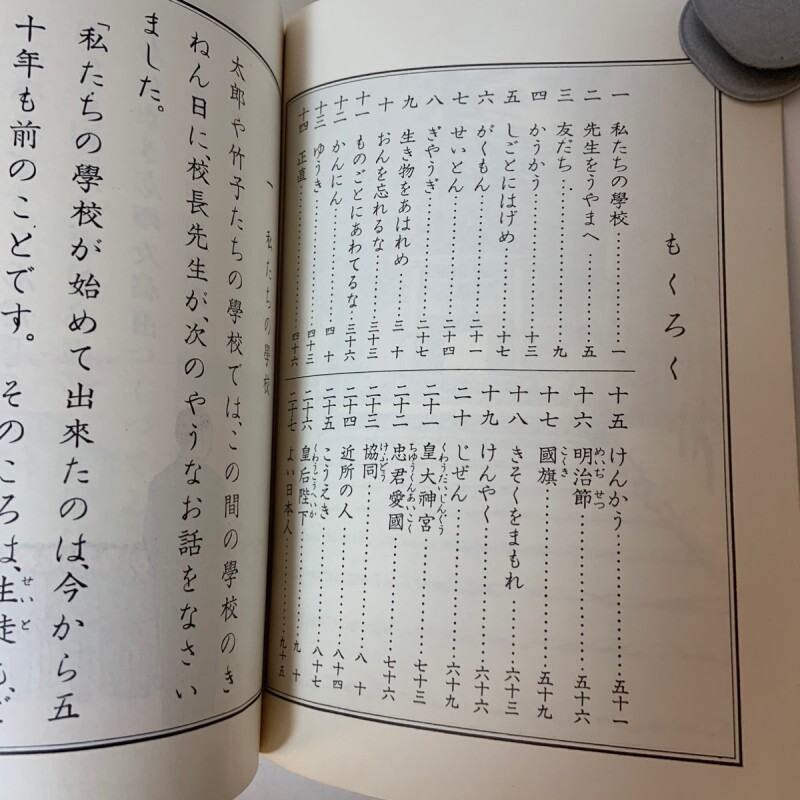 もくろく
一 私たちの學校……一
二 先生をうやまへ……五
三 友だち……九
四 かうかう……十三
五 しごとにはげめ……十七
六 がくもん……二十一
七 せいとん……二十四
八 ぎやうぎ……二十七
九 生き物をあはれめ……三十
十 おんを忘れるな……三十三
十一 ものごとにあわてるな……三十六
十二 かんにん……四十
十三 ゆうき……四十三
十四 正直……四十六
十五 けんかう……五十一
十六 明治節……五十六
めいぢせつ
十七 國旗……五十九
こくき
十八 きそくをまもれ……六十三
十九 けんやく……六十六
二十 じぜん……六十九
二十一 皇大神宮……七十三
くわうだいじんぐう
二十二 忠君愛國……七十六
ちゆうくんあいこく
二十三 協同……八十
けふどう
二十四 近所の人……八十四
二十五 こうえき……八十七
二十六 皇后陛下……九十
くわうごうへいか
二十七 よい日本人……九十五
一 私たちの學校
太郎や竹子たちの學校では、この間の學校のき
ねん日に、校長先生が、次のやうなお話をなさい
ました。
「私たちの學校が始めて出來たのは、今から五
十年も前のことです。そのころは、生徒も、ど
せいと